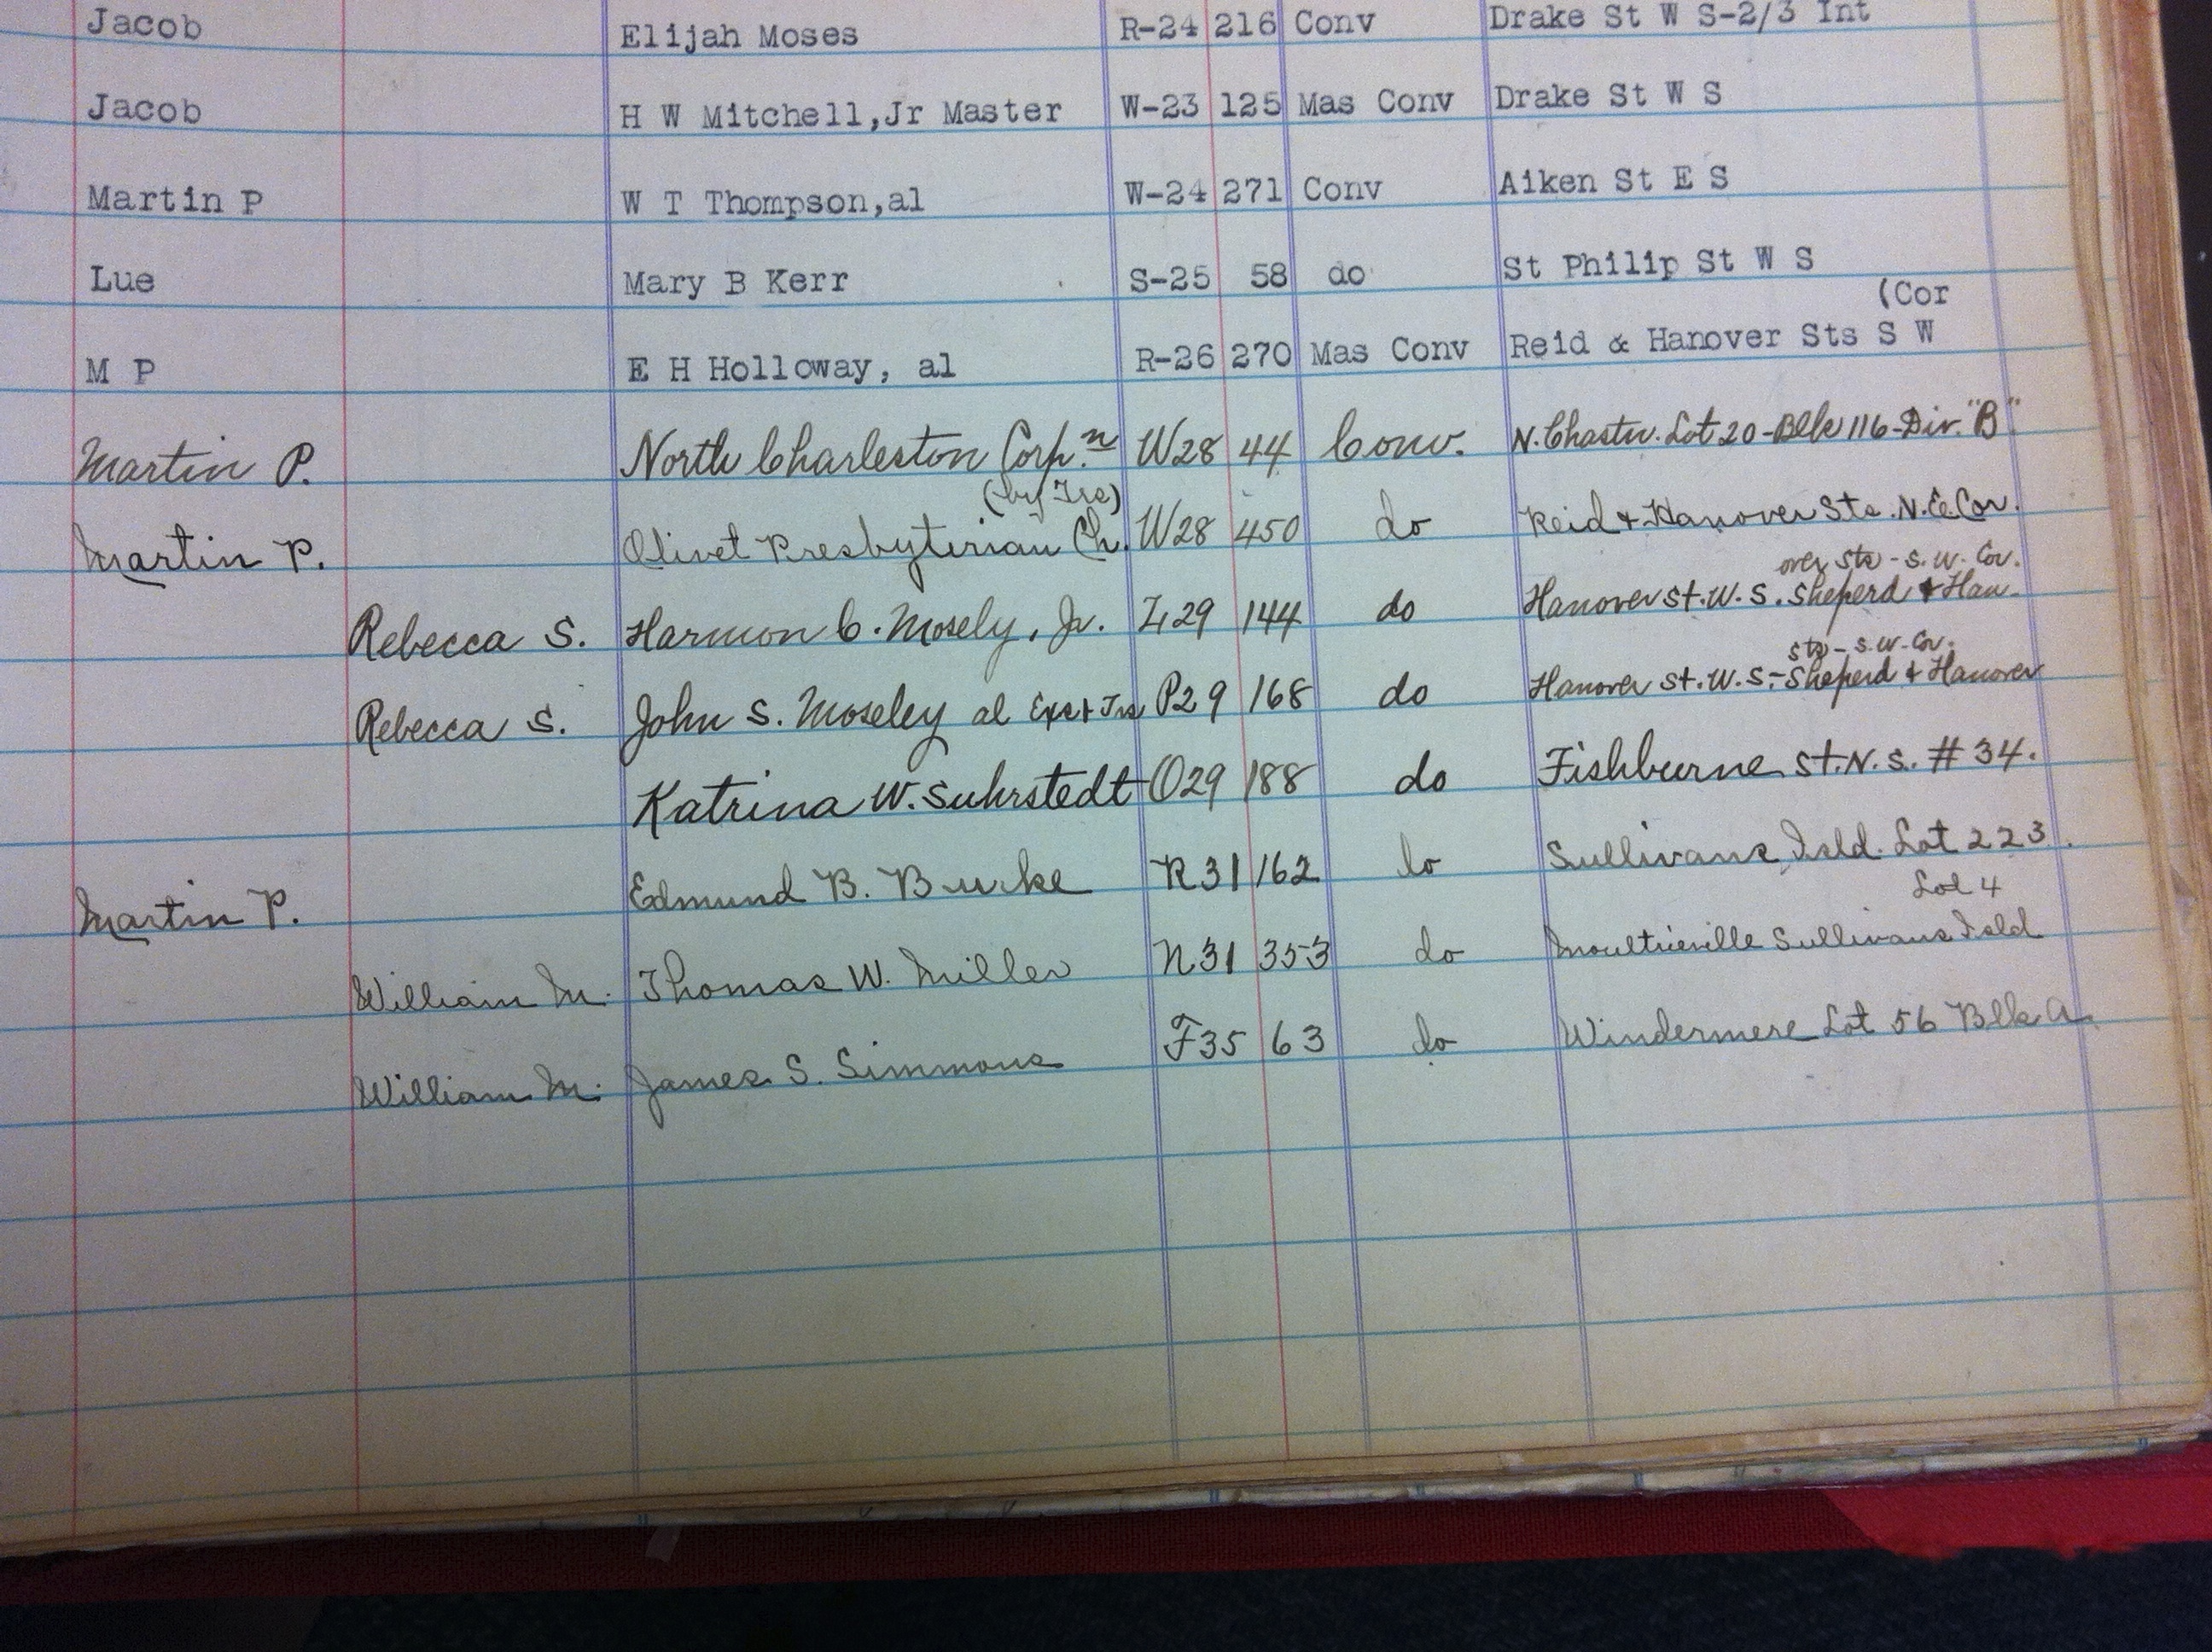 Jacob Elijah Moses R-24 216 Conv Drake St W S-2/3 Int
Jacob H W Mitchell,Jr Master W-23 125 Mas Conv Drake St W S
Martin P W T Thompson,al W-24 271 Conv Aiken St E S
Lue Mary B Kerr S-25 58 do St Philip St W S
(Cor
M P E H Holloway, al R-26 270 Mas Conv Reid & Hanover Sts S W
Martin P. North Charleston Corp.n W28 44 Conv. N. Chastn. Lot 20-Blk 116-Div. "B"
(by Trs)
Martin P. Olivet Presbyterian Ch. W28 450 do Reid & Hanover Sts. N.E. Cor.
over Sts - S. W. Cor.
Rebecca S. Harmon C. Mosely, Jr. Z29 144 do Hanover St. W. S. Sheperd & Han-
sts - S. W. Cor.
Rebecca S. John S. Moseley al Exs & Trs P29 168 do Hanover St. W. S. - Sheperd & Hanover
Katrina W. Suhrstedt O29 188 do Fishburne St. N. S. # 34.
Martin P. Edmund B. Burke R31 162 do Sullivans Isld. Lot 223.
Lot 4
William M. Thomas W. Miller N31 353 do Moultrieville Sullivans Isld
William M. James S. Simmons F35 63 do Windermere Lot 56 Blk A